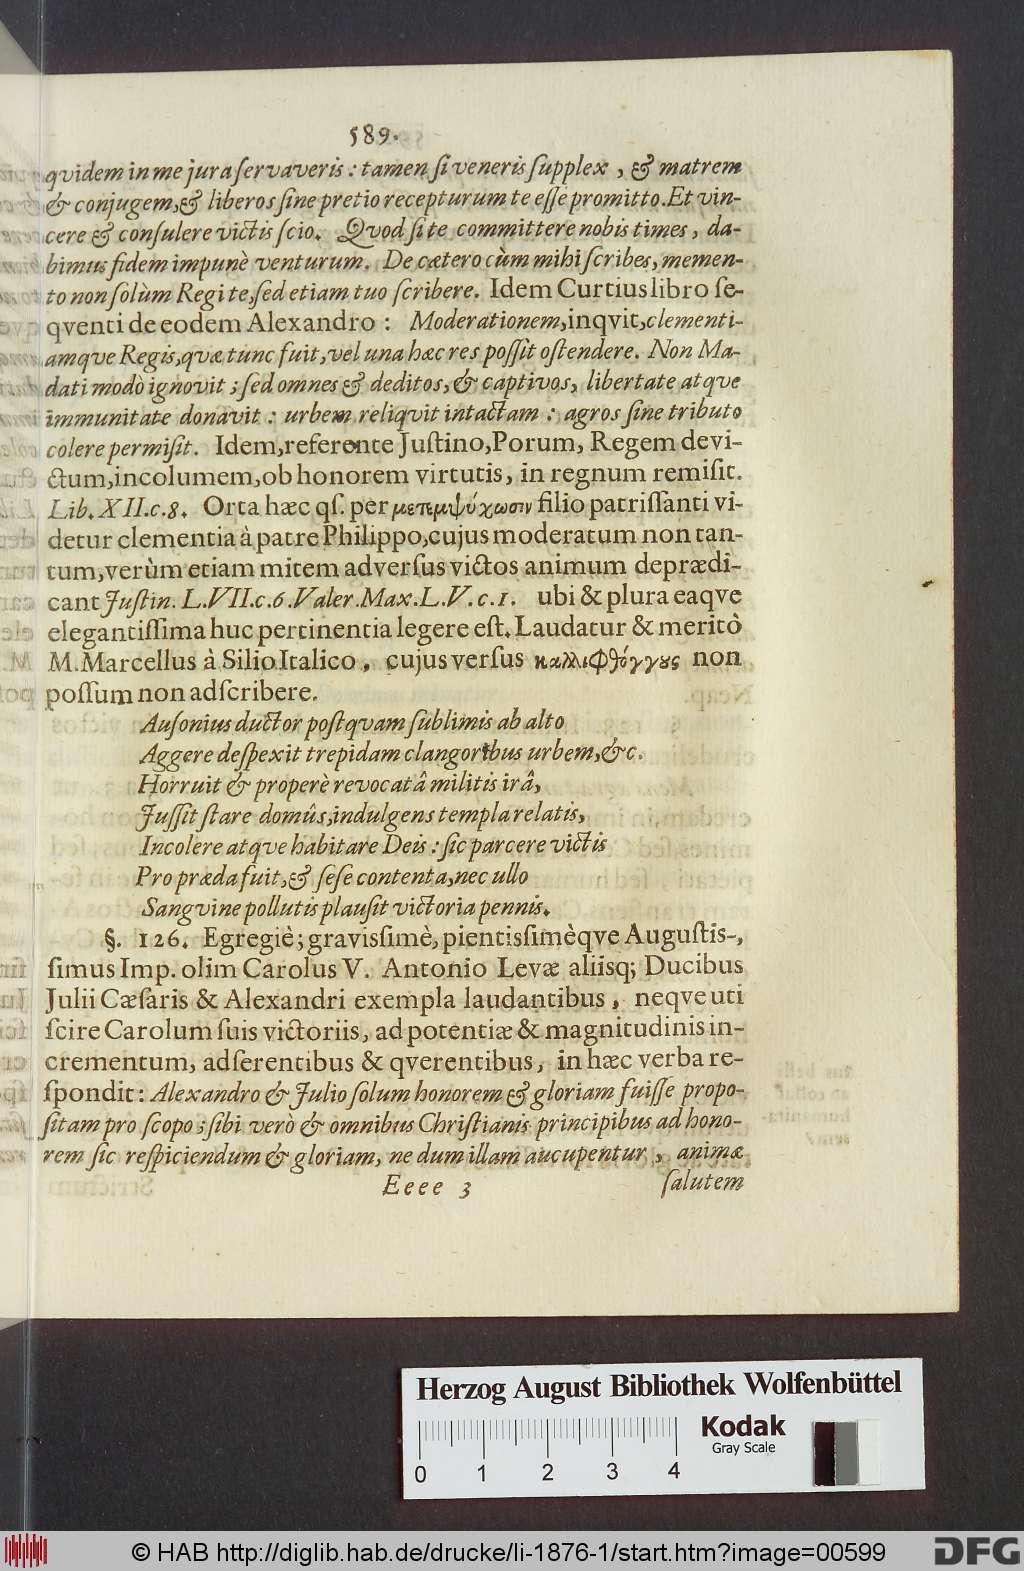 589.
qvidem in me jura ſervaveris : tamen ſi veneris ſupplex, & matrem
& conjugem, & liberos ſine pretio recepturum te eſſe promitto. Et vin-
cere & conſulere victis ſcio. Qvod ſi te committere nobis times, da-
bimus fidem impunè venturum. De cætero cùm mihi ſcribes, memen-
to non ſolùm Regi te, ſed etiam tuo ſcribere. Idem Curtius libro ſe-
qventi de eodem Alexandro : Moderationem, inqvit, clementi-
amqve Regis, qvæ tunc fuit, vel una hæc res poſſit oſtendere. Non Ma-
dati modò ignovit ; ſed omnes & deditos, & captivos, libertate atqve
immunitate donavit : urbem reliqvit intactam : agros ſine tributo
colere permiſit. Idem, referente Juſtino, Porum, Regem devi-
ctum, incolumem, ob honorem virtutis, in regnum remiſit.
Lib. XII. c. 8. Orta hæc qſ. per μετεμψύχωσιν filio patriſſanti vi-
detur clementia à patre Philippo, cujus moderatum non tan-
tum, verùm etiam mitem adverſus victos animum deprædi-
cant Juſtin. L. VII. c. 6. Valer. Max. L. V. c. 1. ubi & plura eaqve
elegantiſſima huc pertinentia legere eſt. Laudatur & meritò
M. Marcellus à Silio Italico, cujus verſus καλλιφθόγγους non
poſſum non adſcribere.
Auſonius ductor poſtqvam ſublimis ab alto
Aggere deſpexit trepidam clangoribus urbem, &c.
Horruit & properè revocatâ militis irâ,
Juſſit ſtare domûs, indulgens templa relatis,
Incolere atqve habitare Deis : ſic parcere victis
Pro præda fuit, & ſeſe contenta, nec ullo
Sangvine pollutis plauſit victoria pennis.
§. 126. Egregiè ; gravissimè, pientissimèqve Auguſtis-,
ſimus Imp. olim Carolus V. Antonio Levæ aliisq; Ducibus
Julii Cæſaris & Alexandri exempla laudantibus, neqve uti
ſcire Carolum ſuis victoriis, ad potentiæ & magnitudinis in-
crementum, adſerentibus & qverentibus, in hæc verba re-
ſpondit : Alexandro & Julio ſolum honorem & gloriam fuiſſe propo-
ſitam pro ſcopo ; ſibi verò & omnibus Chriſtianis principibus ad hono-
rem ſic reſpiciendum & gloriam, ne dum illam aucupentur, animæ
Eeee 3 ſalutem
Herzog August Bibliothek Wolfenbüttel
Kodak
Gray Scale
0 1 2 3 4
© HAB http://diglib.hab.de/drucke/li-1876-1/start.htm?image=00599
DFG